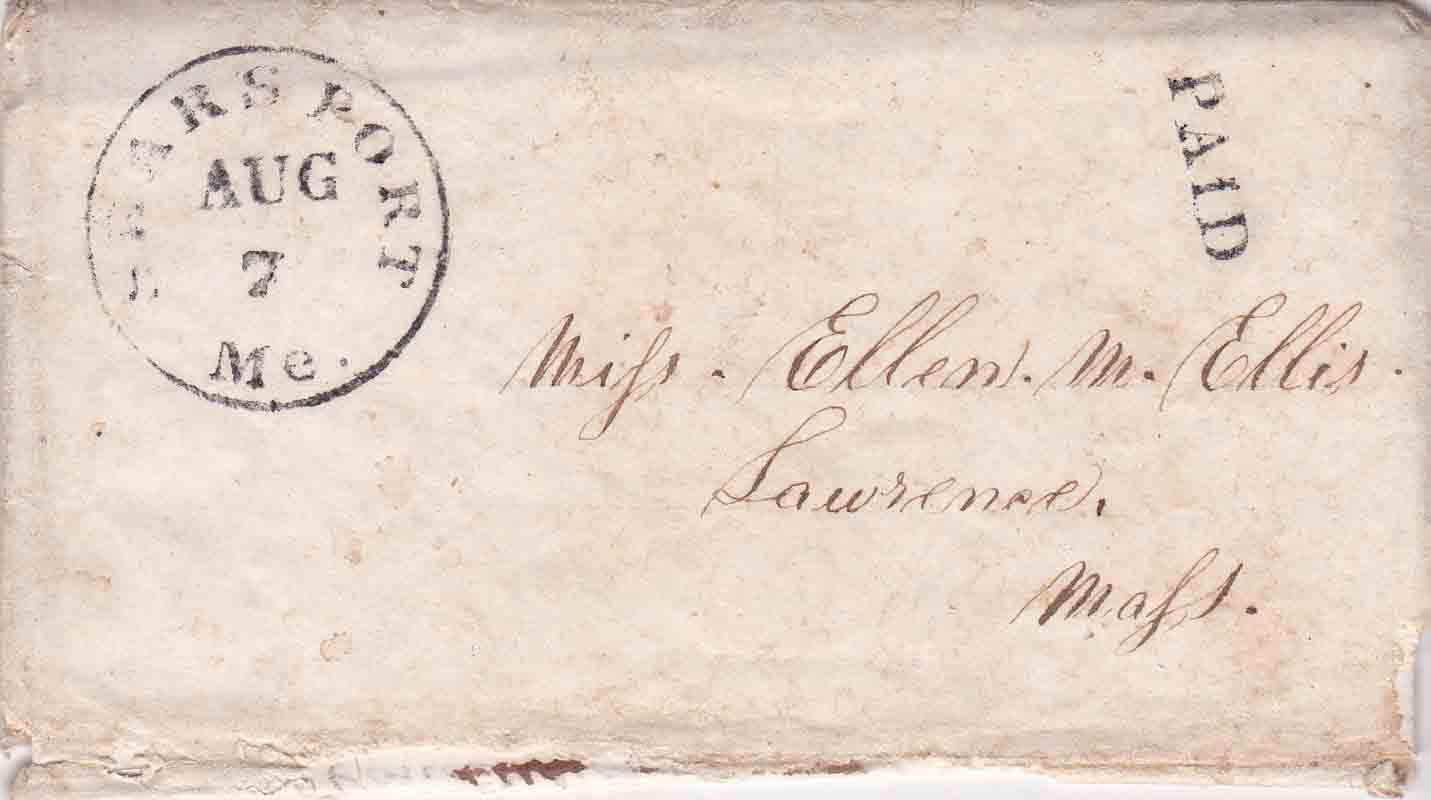 SEARSPORT
AUG
7
Me.
PAID
Miſs. Ellen. M. Ellis.
Lawrence.
Maſs.